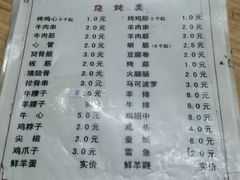 烧烤类
烤鸡心(5个起) 1.0元 烤鸡肠(5个起) 1.0元
羊肉串 2.0元 牛肉串 2.0元
牛肉筋 2.0元 羊肉筋 2.0元
心管 2.0元 蚬筋
窝骨筋 3.0元 豆腐卷 2.0元
板筋 2.0元 烤蒜 1.0元
猪脆骨 2.0元 火腿肠 2.0元
拉骨串 3.0元 马可波罗 3.0元
牛腰子 8.0元 羊排 8.0元
羊腰子 牛排 8.0元
牛心 5.0元 鸡翅中
鸡脖子 2.0元 鸡头 4.0元
尖椒 2.0元 蚕蛹
鸡爪子 3.0元 雪鱼 2.0元
鲜羊蛋 实价 鲜羊鞭 实价